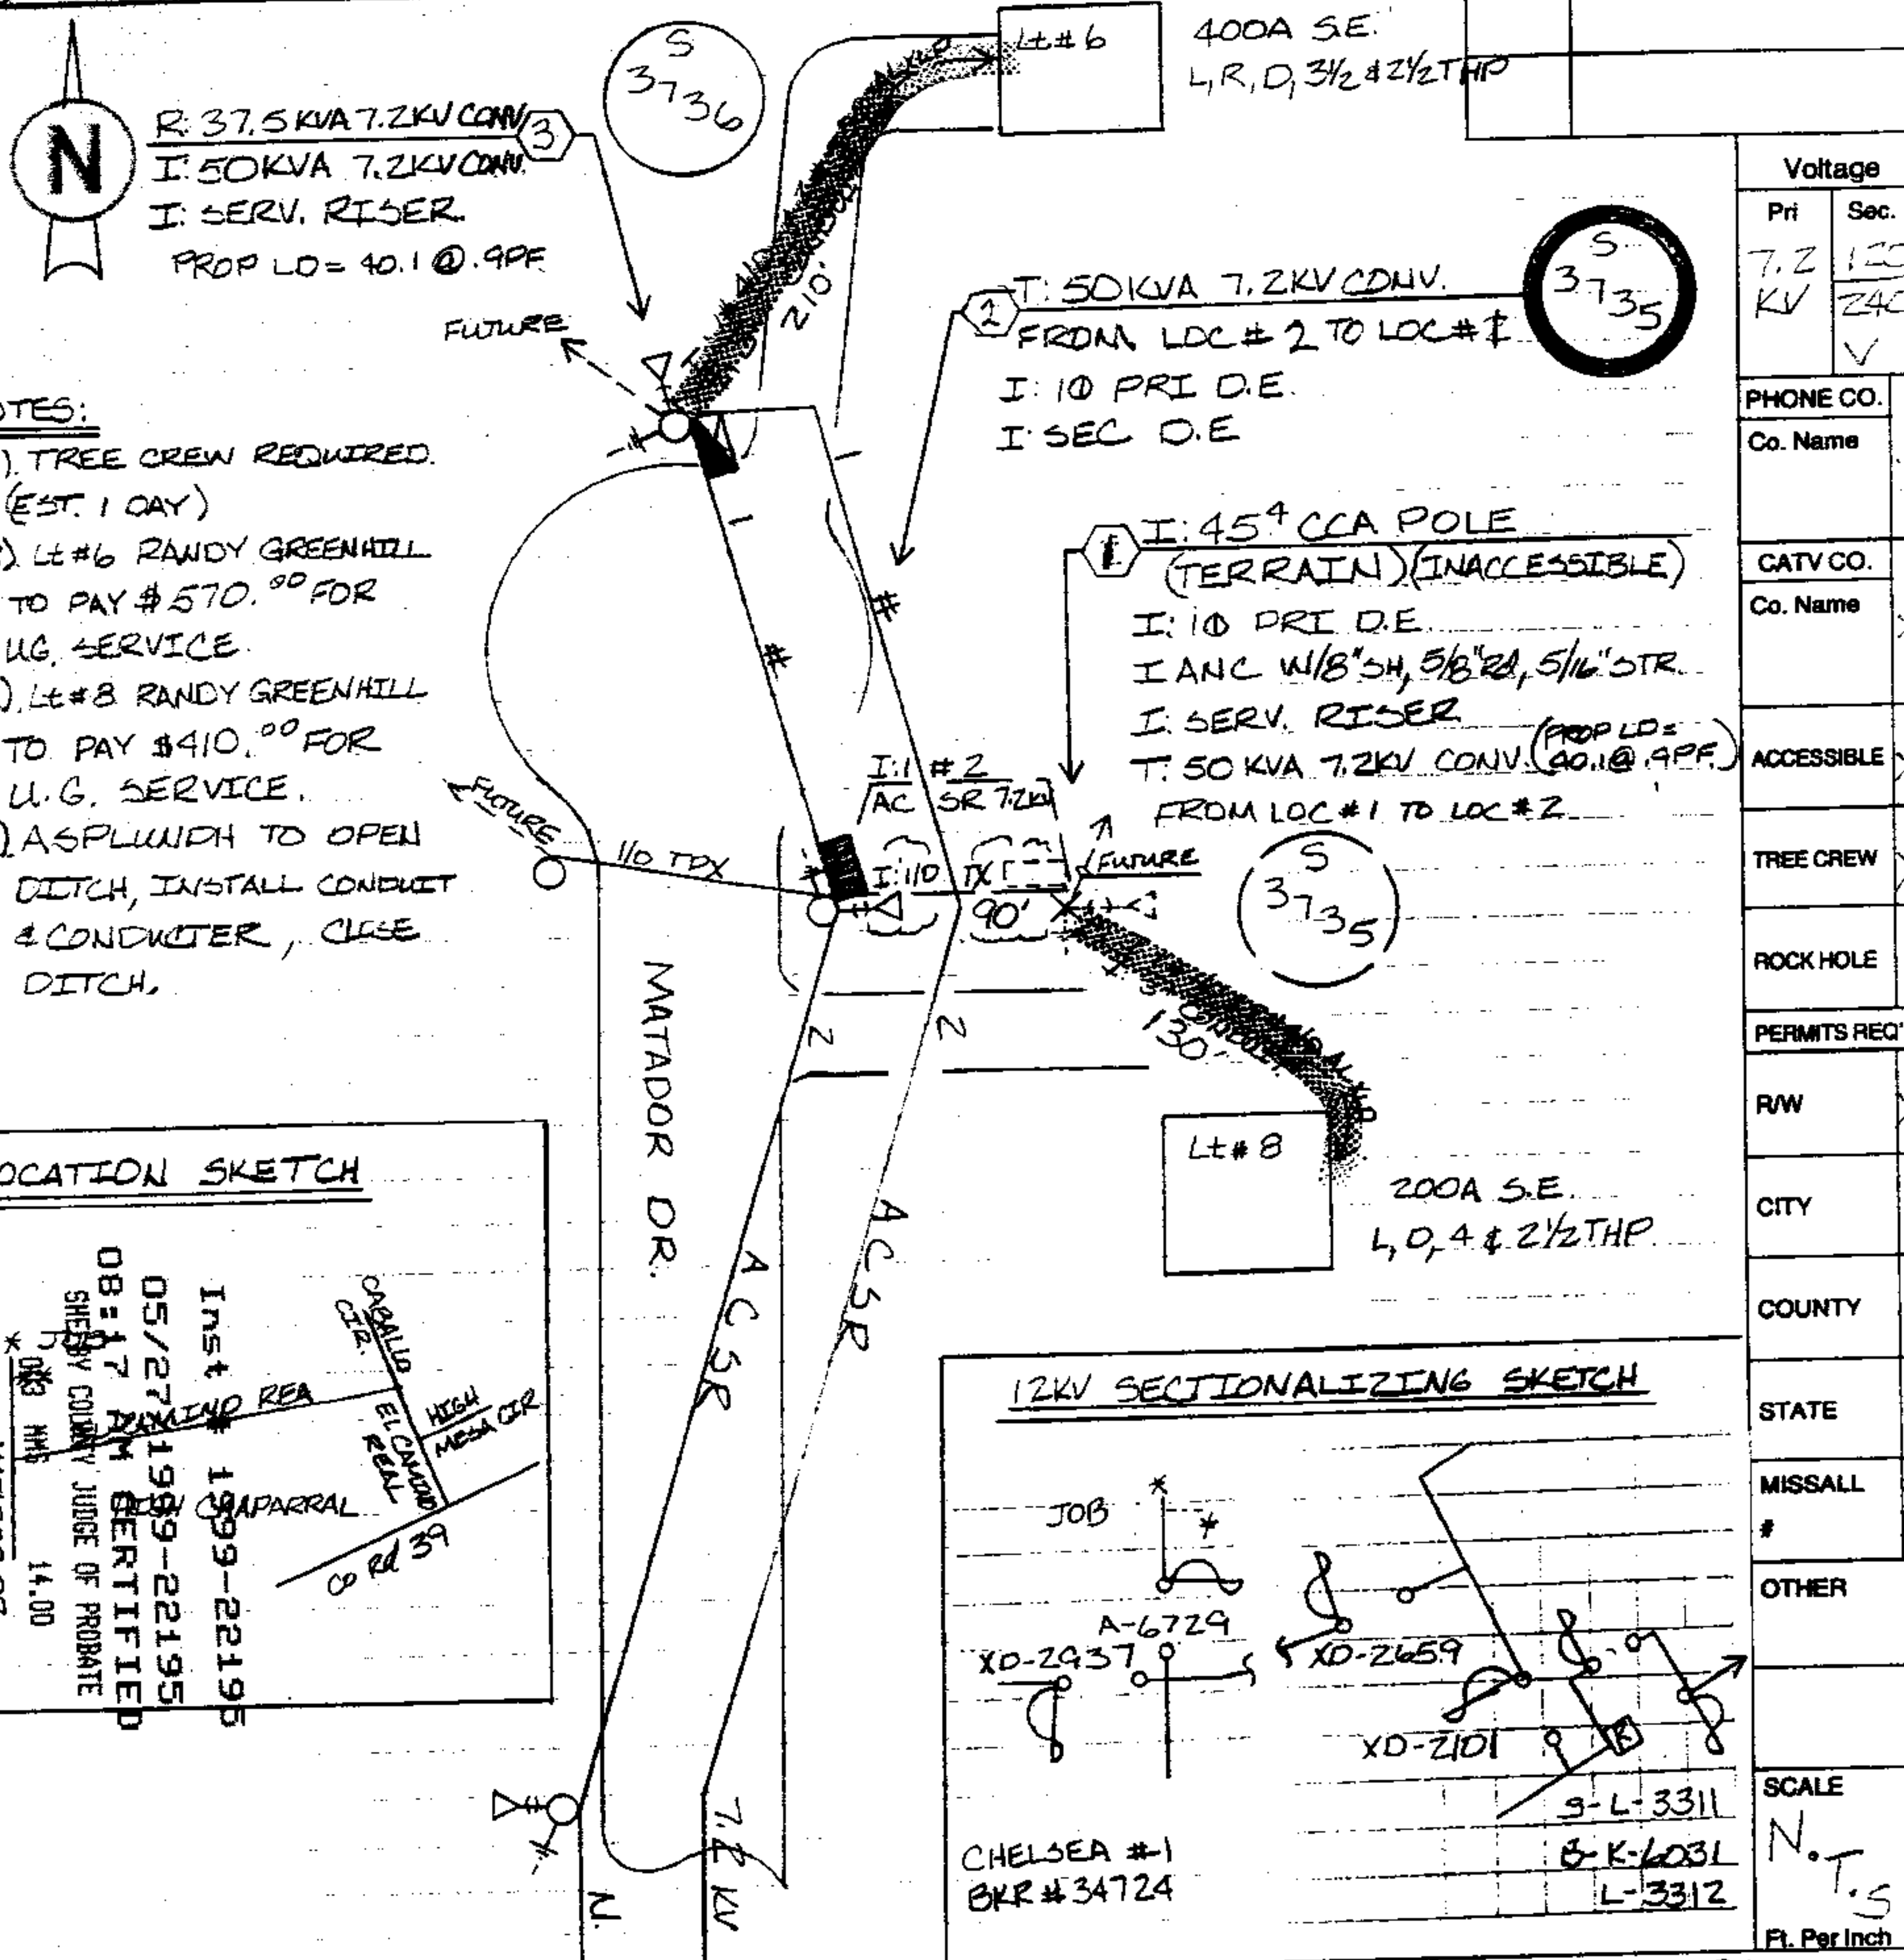 N
R: 37.5 KVA 7.2KV CONV
3
I: 50KVA 7.2KV CONV.
I: SERV. RISER.
PROP LD = 40.1 @ .9PF
S
3736
Lt#6
400A S.E.
L, R, D, 3½ & 2½ THP
210'
FUTURE
2
T: 50KVA 7.2KV CONV.
FROM LOC # 2 TO LOC # 1
I: 1Φ PRI D.E.
I: SEC D.E
S
3735
OTES:
). TREE CREW REQUIRED.
(EST. 1 DAY)
). Lt #6 RANDY GREENHILL
TO PAY $570.00 FOR
UG. SERVICE.
). Lt #8 RANDY GREENHILL
TO PAY $410.00 FOR
U.G. SERVICE.
). ASPLUNDH TO OPEN
DITCH, INSTALL CONDUIT
& CONDUCTER, CLOSE
DITCH.
1
I: 45⁴ CCA POLE
(TERRAIN) (INACCESSIBLE)
I: 1Φ PRI D.E.
I ANC W/8" SH, 5/8" Rd, 5/16" STR.
I: SERV. RISER
T: 50 KVA 7.2KV CONV. (PROP LD = 40.1@ .9PF.)
FROM LOC #1 TO LOC #2
I: 1 # 2
AC SR 7.2KV
I: 1/0 TX
90'
FUTURE
FUTURE
1/0 TPX
S
3735
130'
1 # 2 ACSR
1 # 2 ACSR
MATADOR DR.
Lt # 8
200A S.E.
L, D, 4 & 2½ THP
N.
7.2 KV
OCATION SKETCH
CABALLO
CIR.
CAMINO REA
EL CAMINO
REAL
HIGH
MESA CIR
CHAPARRAL
CO Rd 39
Inst # 1999-22195
05/27/1999-22195
08:17 AM CERTIFIED
SHELBY COUNTY JUDGE OF PROBATE
003 MMS 14.00
12KV SECTIONALIZING SKETCH
JOB
A-6729
XD-2937
XD-2659
XD-2101
S-L-3311
B-K-6031
L-3312
CHELSEA #1
BKR # 34724
Voltage
Pri
Sec.
7.2
KV
V
PHONE CO.
Co. Name
CATV CO.
Co. Name
ACCESSIBLE
TREE CREW
ROCK HOLE
PERMITS REQ'
R/W
CITY
COUNTY
STATE
MISSALL
#
OTHER
SCALE
N.T.S
Ft. Per Inch